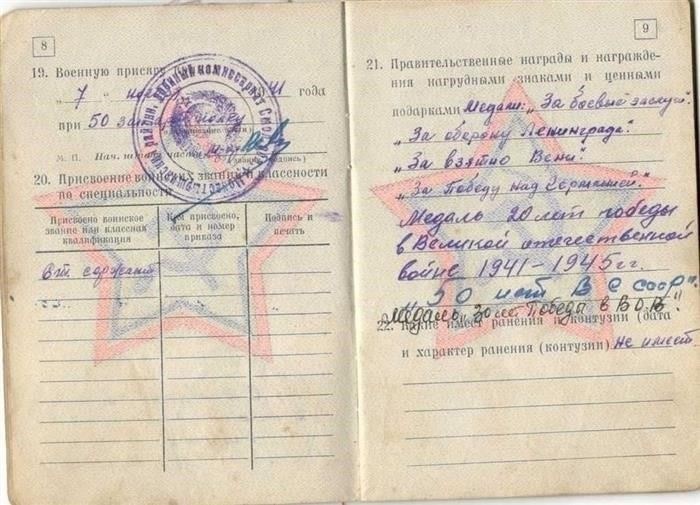 8
19. Военную присягу
„ 7 " 41 года
при 50 полку
М. П. Нач.
20. Присвоение воинских званий и классности
по специальности
Присвоено воинское
звание или классная
квалификация
Кем присвоено,
дата и номер
приказа
Подпись и
печать
9
21. Правительственные награды и награжде-
ния нагрудными знаками и ценными
подарками Медали: „За боевые
„За оборону Ленинграда".
„За взятие Вены".
„За Победу над Германией".
Медаль 20 лет победы
в Великой отечественной
войне 1941-1945 гг.
50 лет В С ссср".
Медаль „30 лет Победы в В.О.В."
22. Какие имеет ранения и контузии (дата
и характер ранения (контузии) Не имеет.